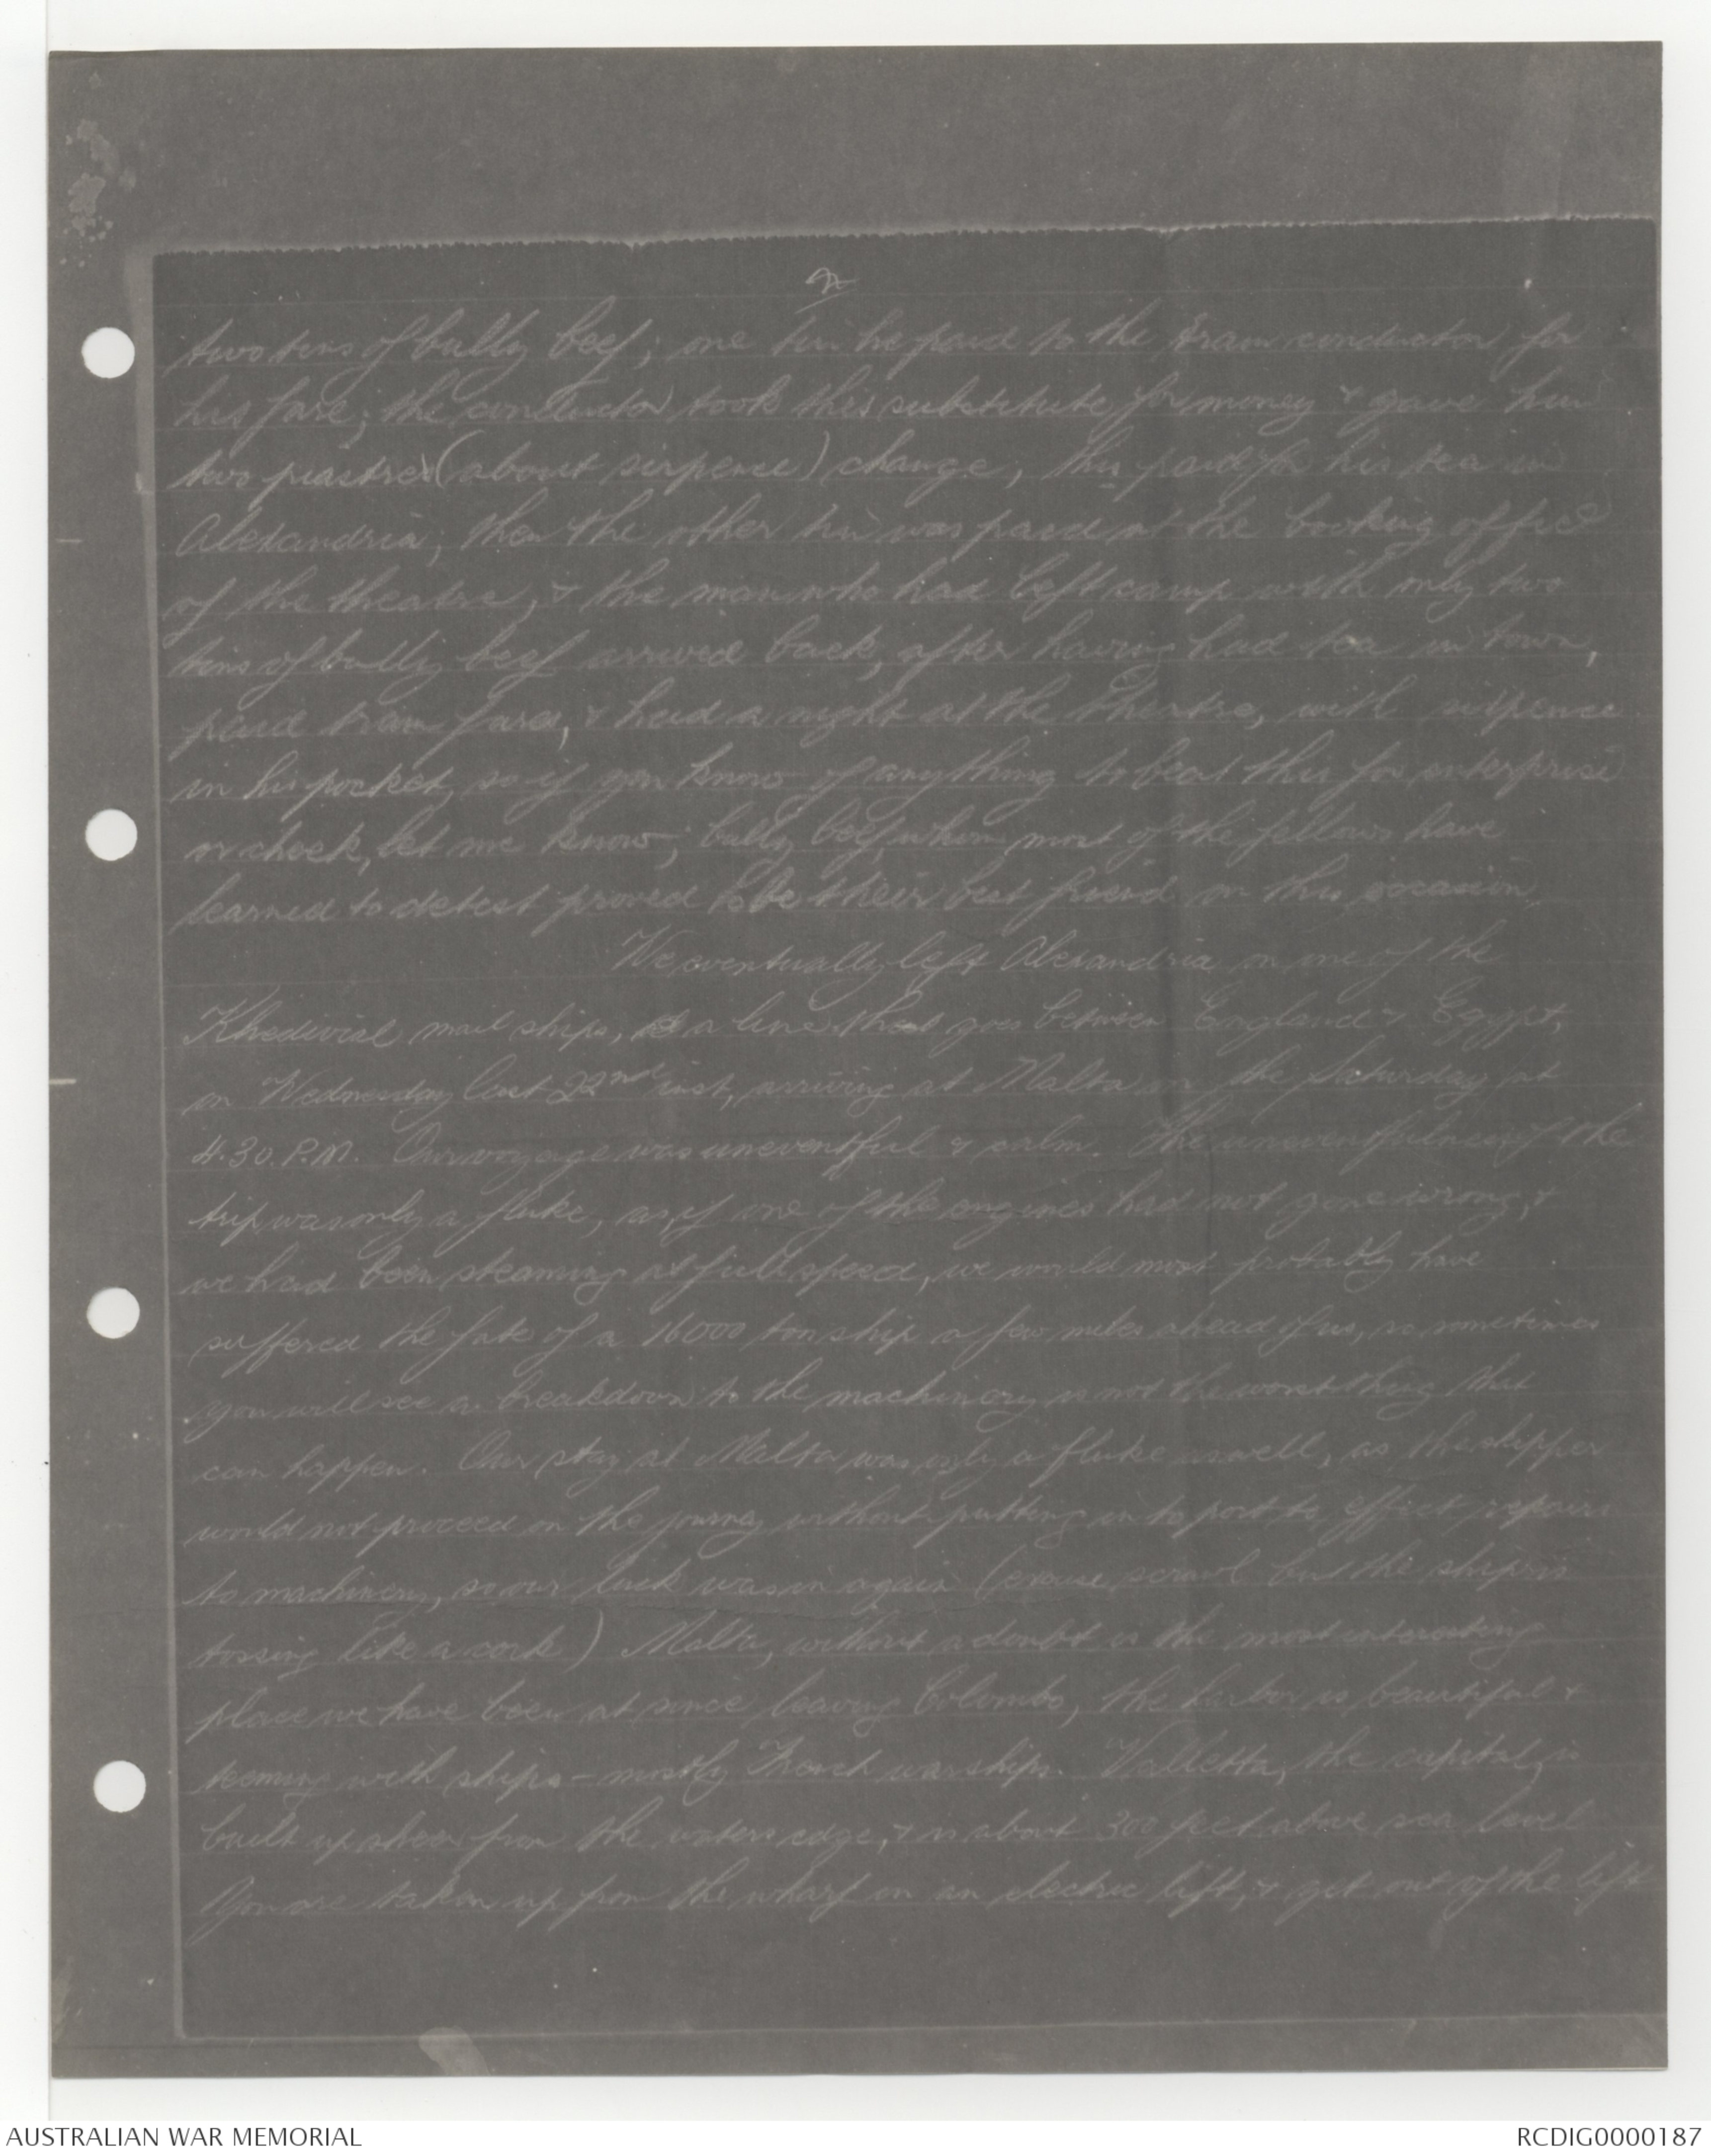 2
two tins of bully beef; one tin he paid to the tram conductor for
his fare; the conductor took this substitute for money & gave him
two piastres (about sixpence) change, this paid for his tea in
Alexandria; then the other tin was paid at the booking office
of the theatre, & the man who had left camp with only two
tins of bully beef arrived back, after having had tea in town,
paid tram fares, & had a night at the theatre, with sixpence
in his pocket, so if you know of anything to beat this for enterprise
or cheek, let me know; bully beef, whom most of the fellows have
learned to detest proved to be their best friend on this occasion.
We eventually left Alexandria on one of the
Khedivial mail ships, a line that goes between England & Egypt,
on Wednesday last 22nd inst, arriving at Malta on the Saturday at
4.30. P.M. Our voyage was uneventful & calm. The uneventfulness of the
trip was only a fluke, as, if one of the engines had not gone wrong, &
we had been steaming at full speed, we would most probably have
suffered the fate of a 16000 ton ship a few miles ahead of us, so sometimes
you will see a breakdown to the machinery is not the worst thing that
can happen. Our stay at Malta was only a fluke as well, as the skipper
would not proceed on the journey without putting in to port to effect repairs
to machinery, so our luck was in again (excuse scrawl but the ship is
tossing like a cork) Malta, without a doubt is the most interesting
place we have been at since leaving Colombo, the harbor is beautiful &
teeming with ships - mostly French warships. Valletta, the capital, is
built up sheer from the waters edge, & is about 300 feet above sea level
You are taken up from the wharf on an electric lift, & get out of the lift
AUSTRALIAN WAR MEMORIAL
RCDIG0000187